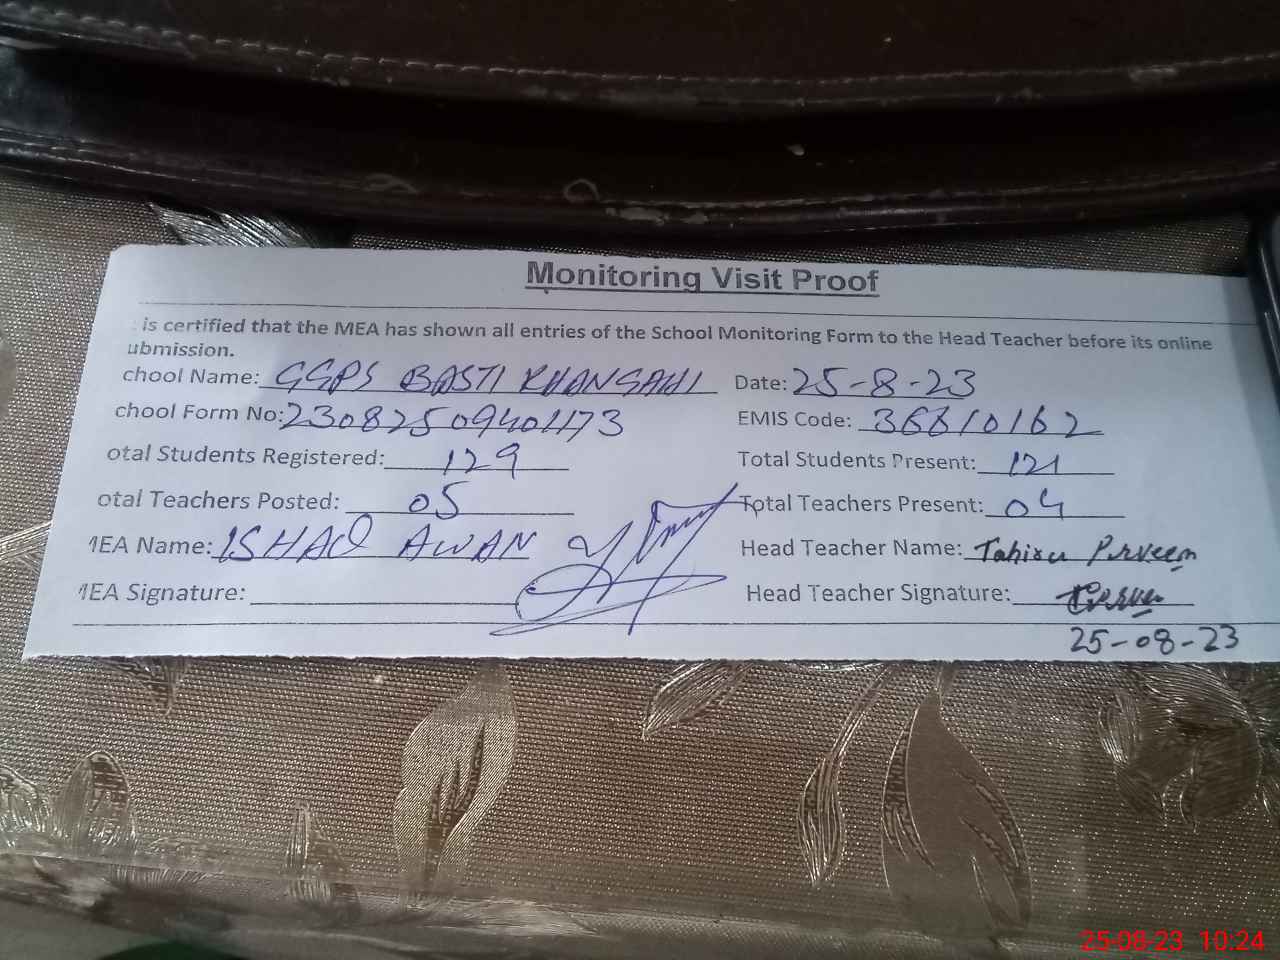 Monitoring Visit Proof
is certified that the MEA has shown all entries of the School Monitoring Form to the Head Teacher before its online
ubmission.
chool Name: GGPS BASTI KHANGAHI Date: 25-8-23
chool Form No: EMIS Code:
otal Students Registered: 129 Total Students Present: 121
otal Teachers Posted: 05 Total Teachers Present: 04
MEA Name: ISHAQ AWAN Head Teacher Name: Perveen
MEA Signature: Head Teacher Signature:
25-08-23
25-08-23 10:24